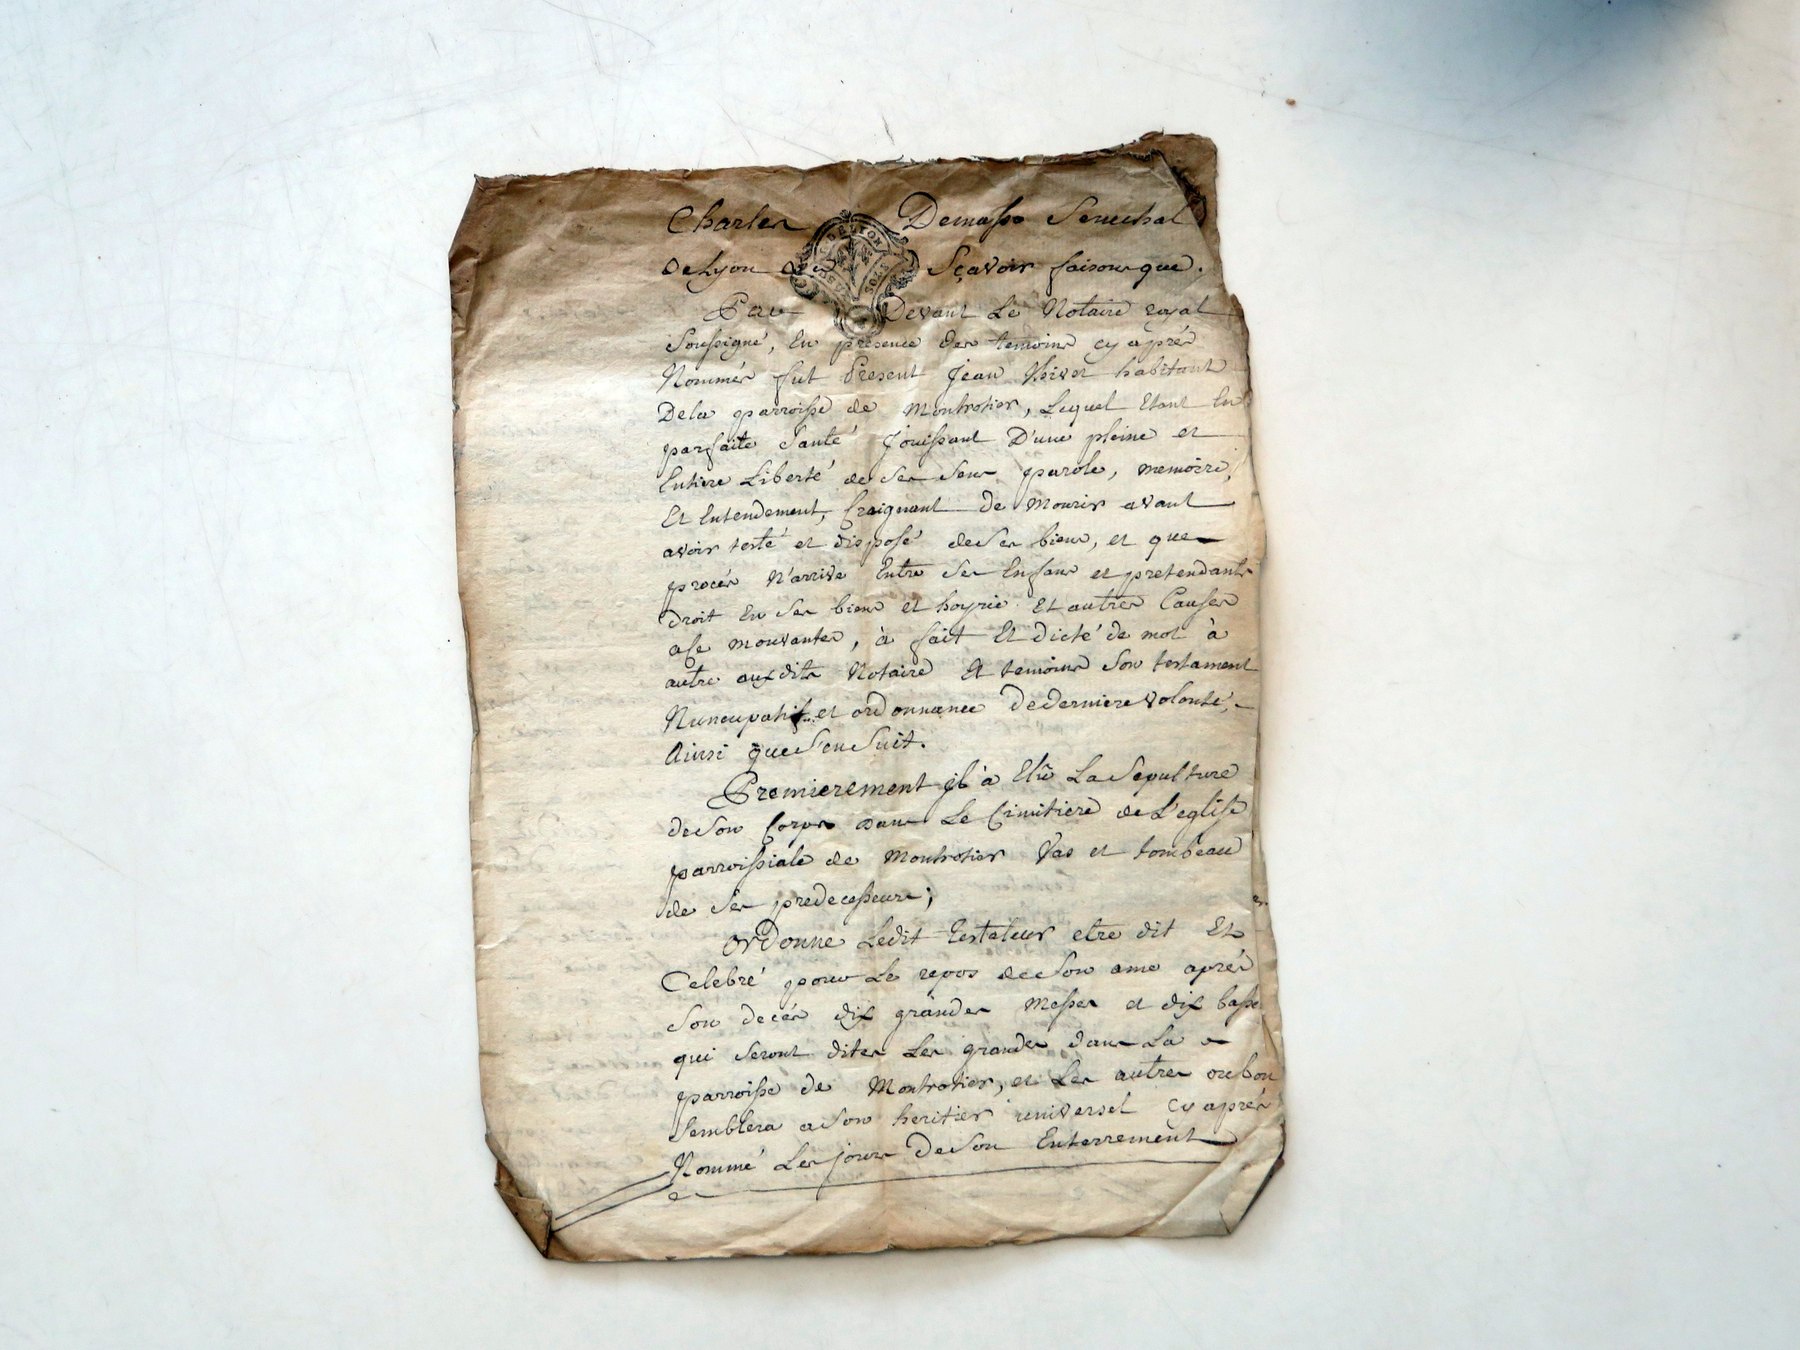 Charles Demasso Senechal
De Lyon Sçavoir faisons que.
Par Devant Le Notaire royal
Soussigné, En presence des temoins cy aprés
Nommés fut Present Jean habitant
De la parroisse de Montrotier, Lequel Etant En
parfaite Santé Jouissant D'une pleine et
Entiere Liberté de Ses Sens parole, memoire,
Et Entendement, Craignant De Mourir avant
avoir testé et disposé de Ses biens, et que
procés N'arrive Entre Ses Enfans et pretendants
droit En Ses biens et hoyrie Et autres Causes
a ce mouvantes, à fait Et dicté de mot à
autre auxdits Notaire Et temoins Son testament
Nuncupatif et ordonnance De derniere volonté,
Ainsi que S'en Suit.
Premierement il à Elû La Sepulture
de Son Corps dans Le Cimitiere de L'eglise
parroissiale de Montrotier Vas et tombeau
de Ses predecesseurs;
Ordonne Ledit Testateur etre dit Et
Celebré pour Le repos de Son ame aprés
Son decés dix grandes Messes et dix basse
qui Seront dites Les grandes dans La
parroisse de Montrotier, et Les autres ou bon
Semblera a Son heritier universel cy aprés
Nommé Les jours De Son Enterrement